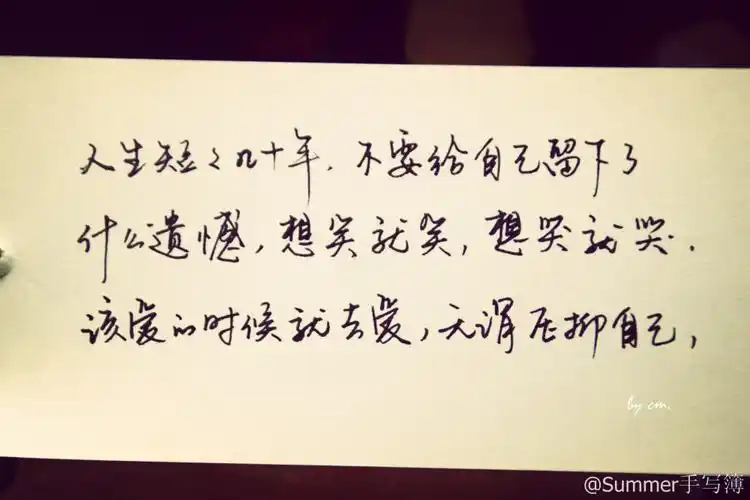 人生短々几十年,不要给自己留下了
什么遗憾,想笑就笑,想哭就哭.
该爱的时候就去爱,无谓压抑自己,
by cm.
@Summer手写簿